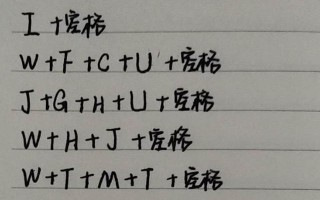 I +空格
W+F+C+U+空格
J+G+H+U+空格
W+H+J+空格
W+T+M+T+空格